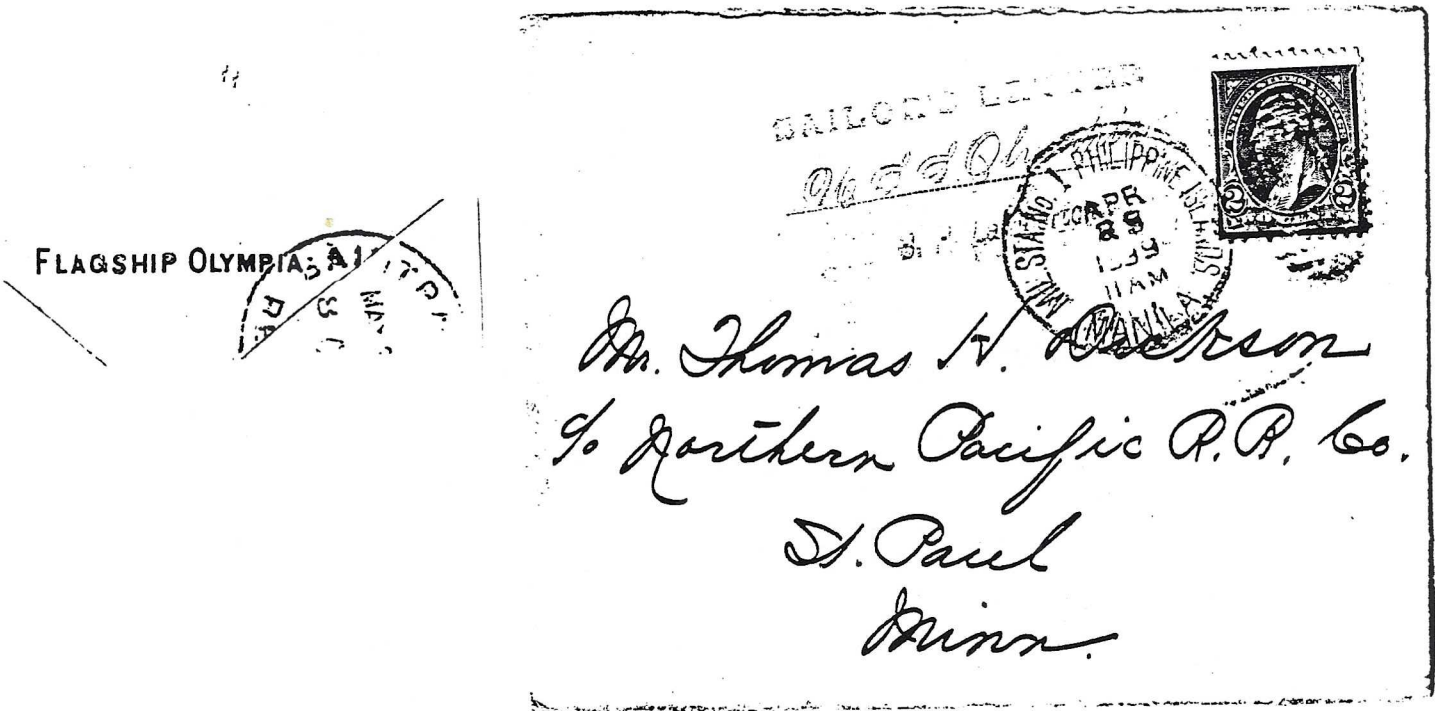 FLAGSHIP OLYMPIA
SAILOR'S LETTER
MIL. STA. No 1 PHILIPPINE ISLANDS
APR
1899
11 AM
MANILA
UNITED STATES POSTAGE
2 2
Mr. Thomas H. Dickson
c/o Northern Pacific R.R. Co.
St. Paul
Minn.